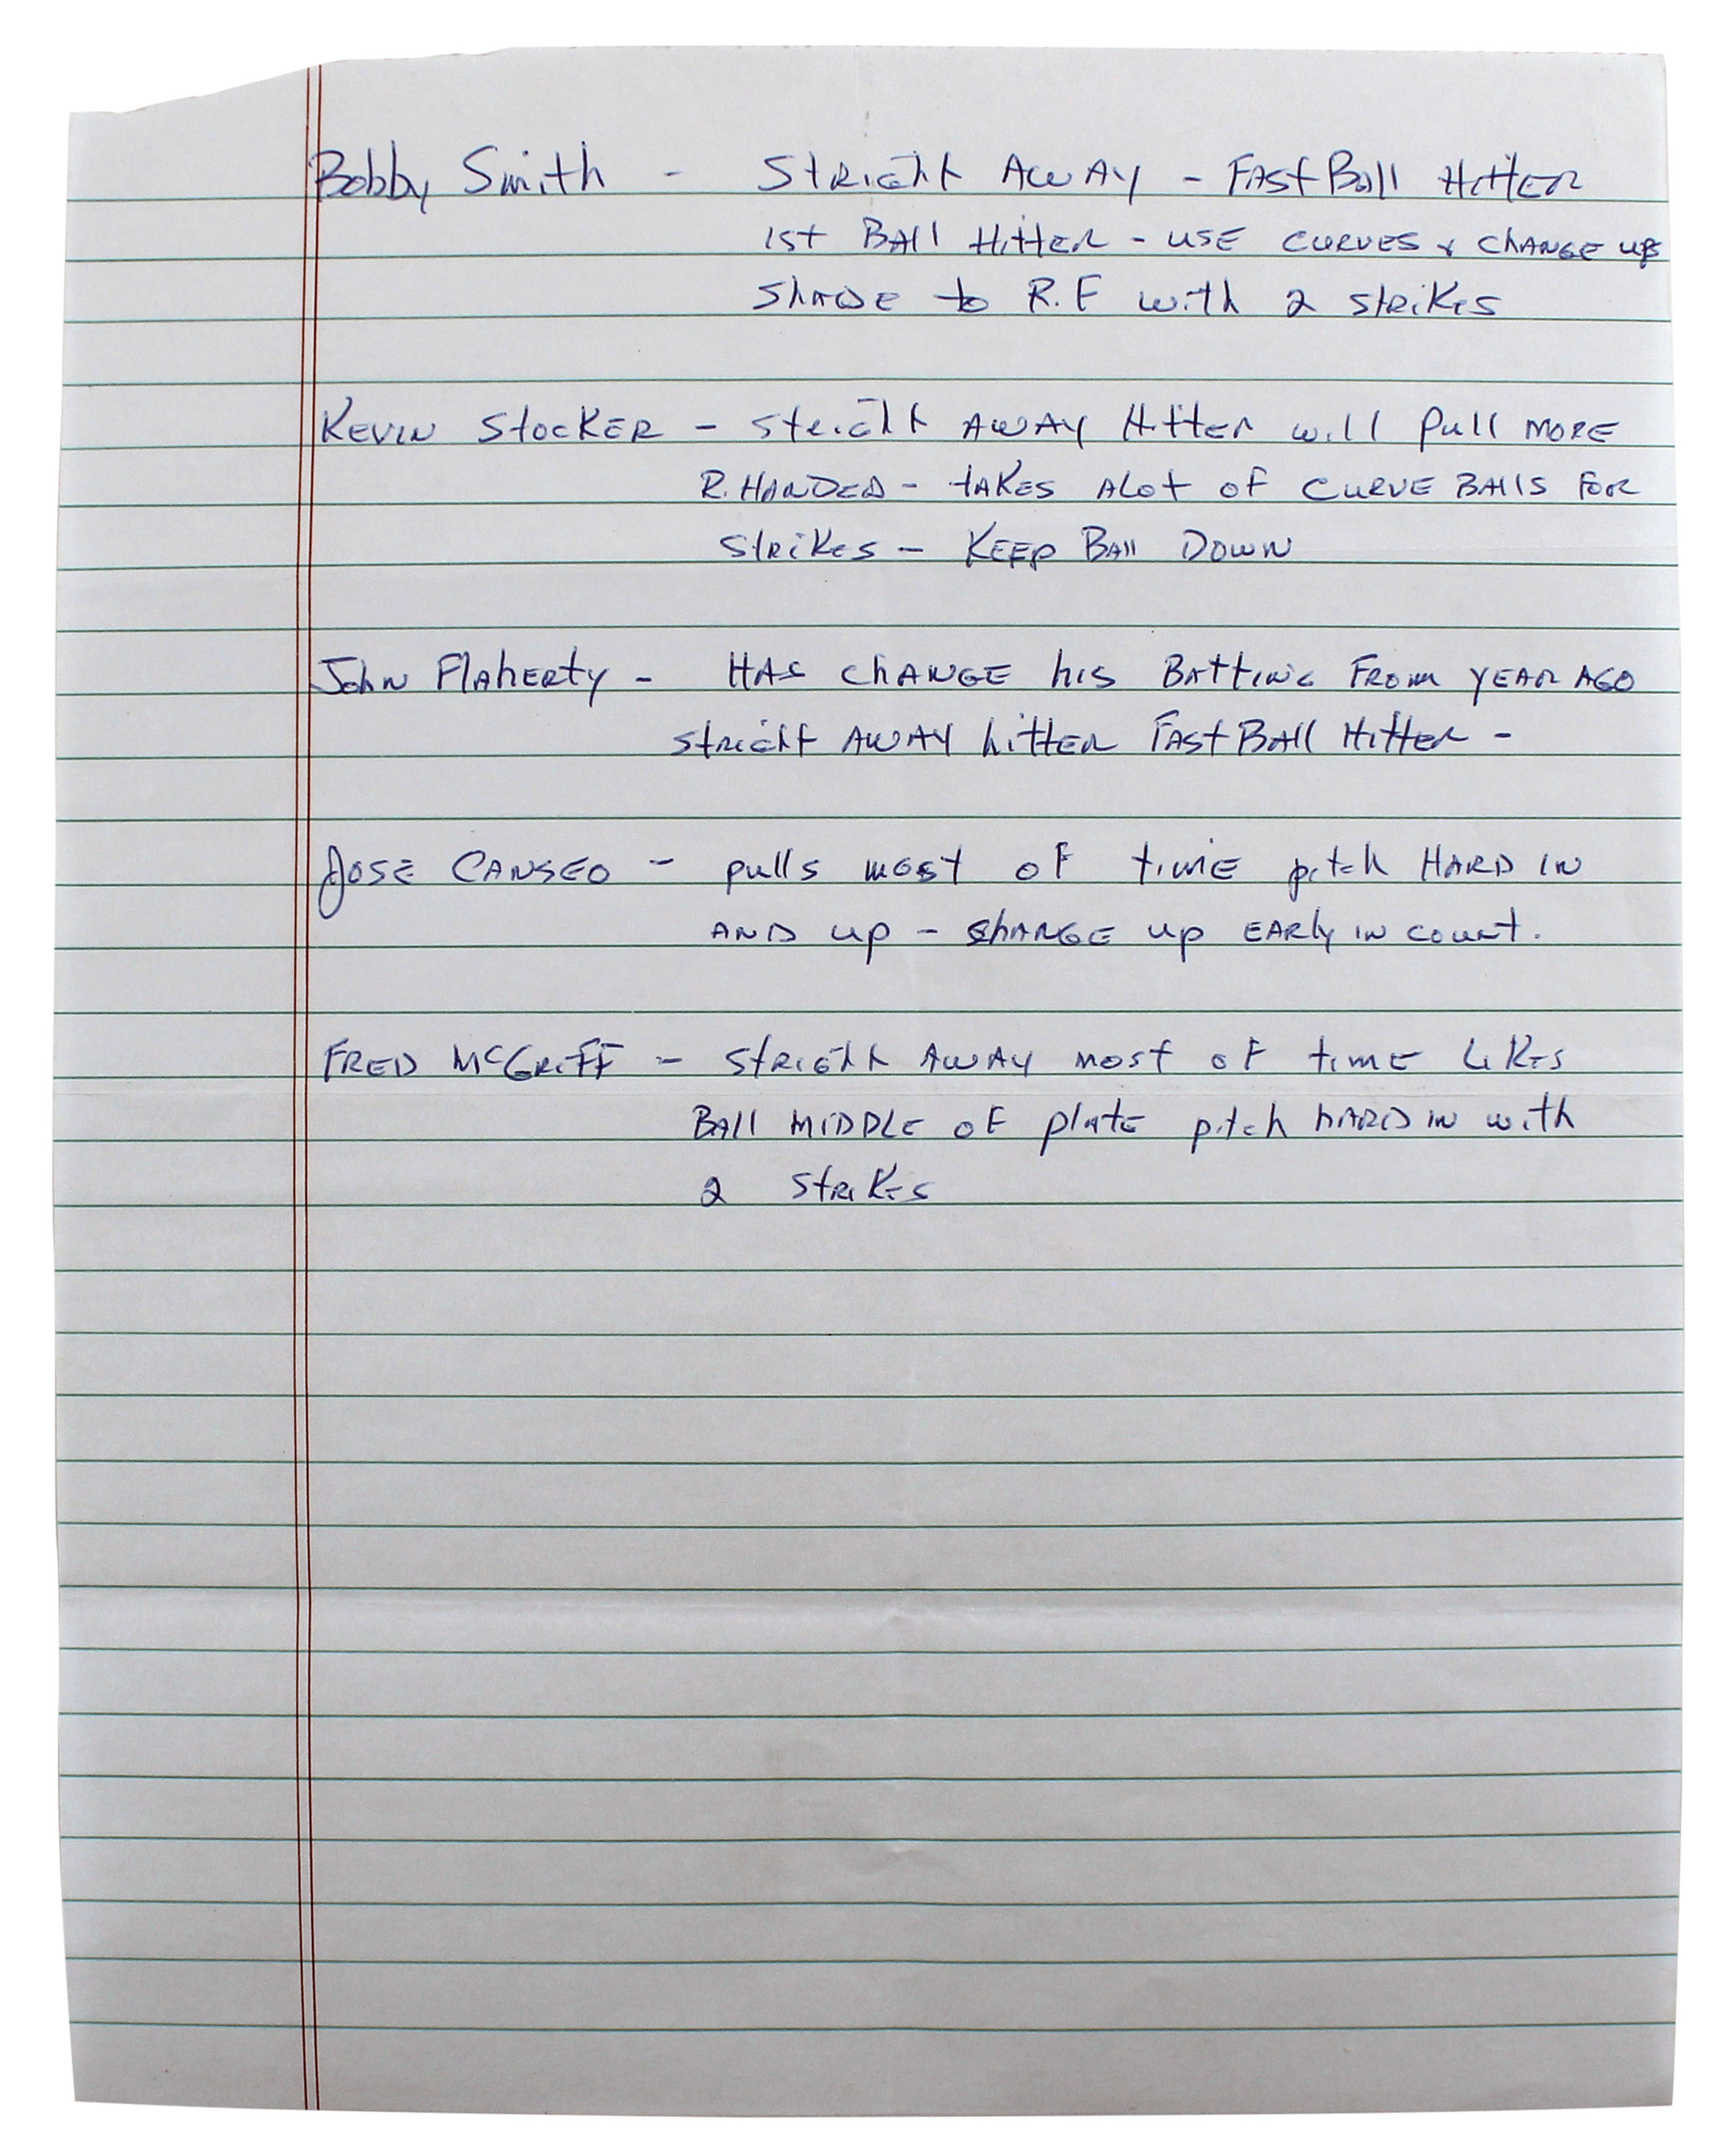 Bobby Smith - Stright Away - Fast Ball Hitter
1st Ball Hitter - use curves & change ups
Shade to R.F with 2 strikes
Kevin Stocker - Stright Away Hitter will pull more
R. Handed - takes alot of curve balls for
strikes - Keep Ball Down
John Flaherty - Has change his Batting From year ago
Stright Away hitter Fast Ball Hitter -
Jose Canseo - pulls most of time pitch Hard in
and up - change up early in count.
Fred McGriff - Stright Away most of time likes
Ball middle of plate pitch hard in with
2 strikes